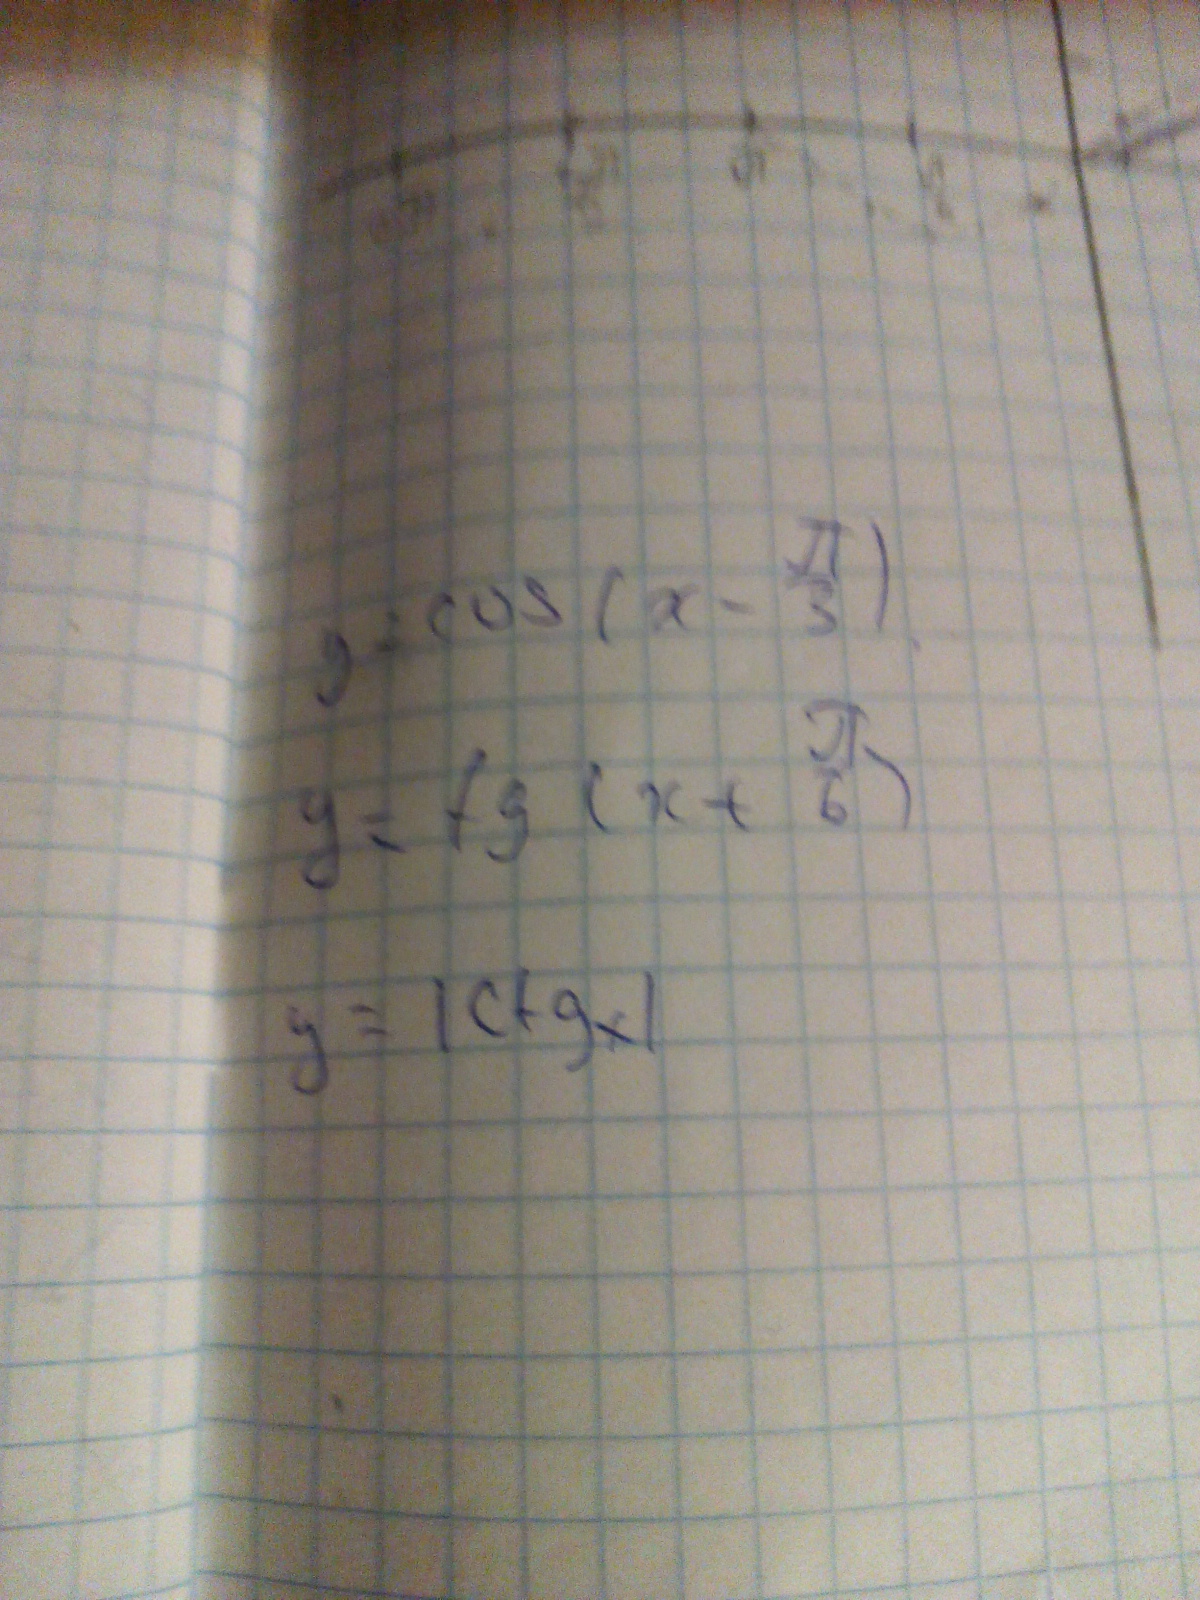 y = cos (x - π/3)
y = tg (x + π/6)
y = |ctgx|